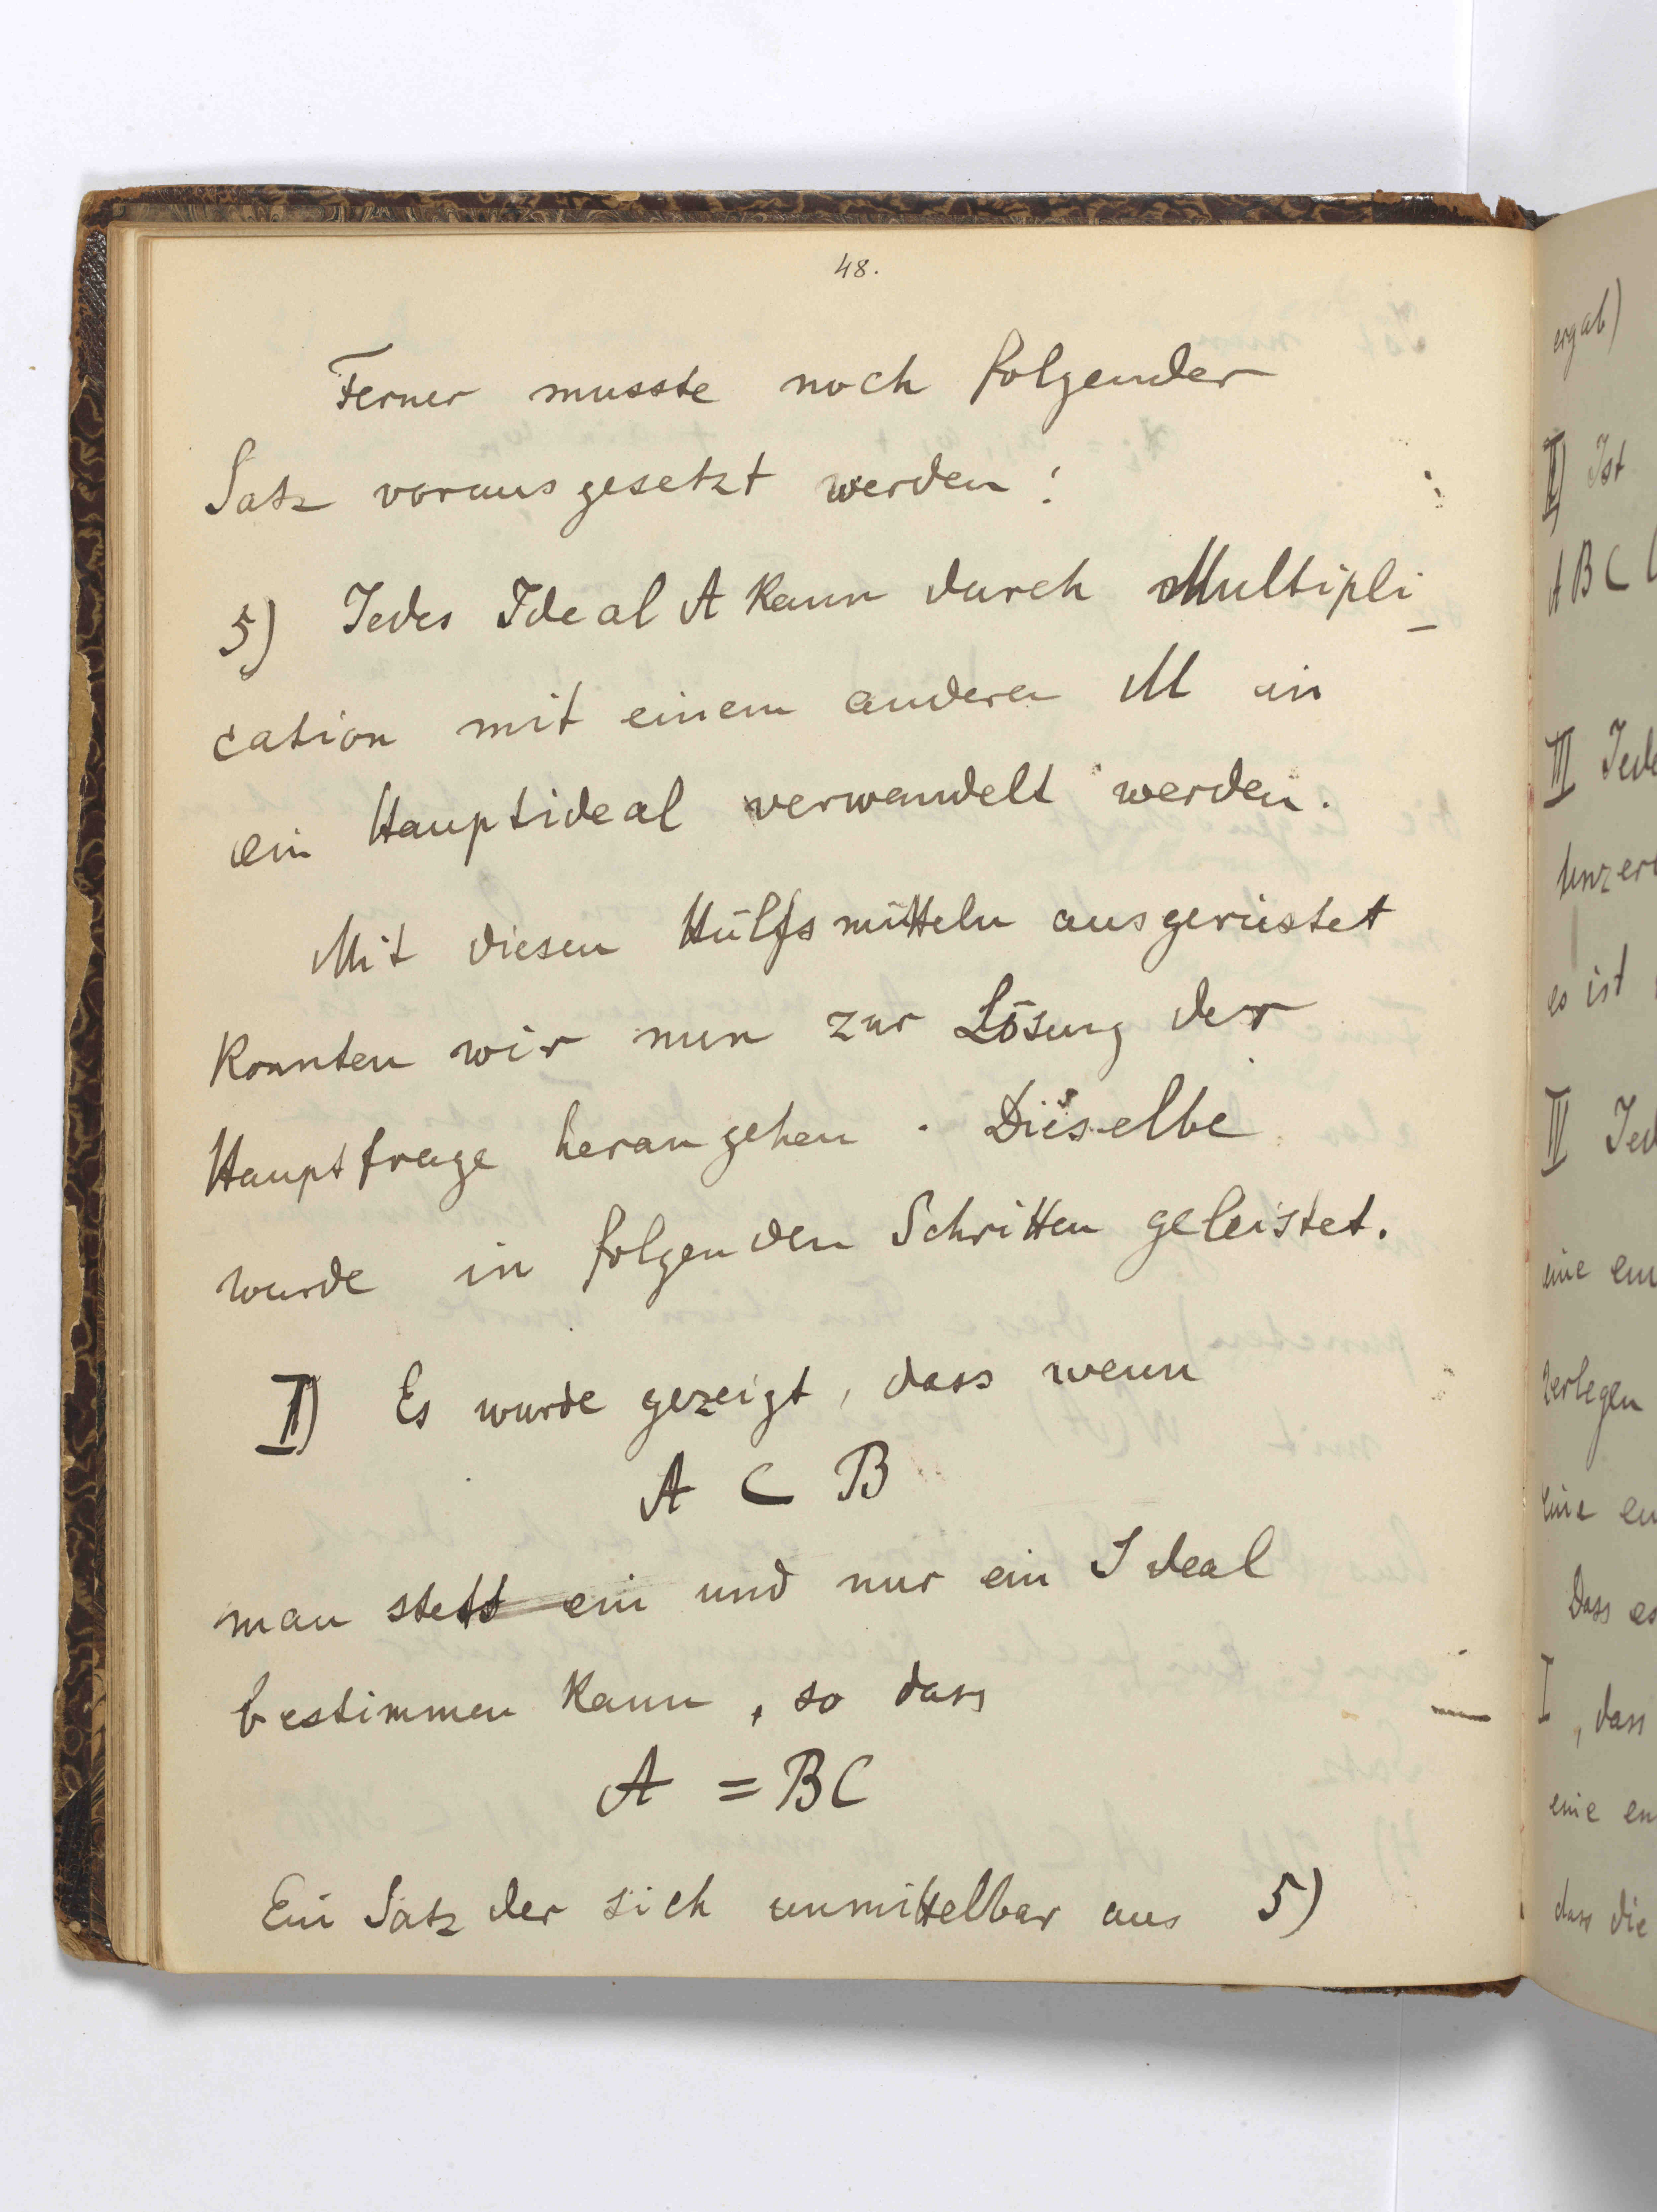 48.
Ferner musste noch folgender
Satz vorausgesetzt werden:
5) Jedes Ideal A kann durch Multipli-
cation mit einem anderen M in
ein Hauptideal verwandelt werden.
Mit diesen Hülfsmitteln ausgerüstet
konnten wir nun zur Lösung der
Hauptfrage herangehen. Dieselbe
wurde in folgenden Schritten geleistet.
I) Es wurde gezeigt, dass wenn
A ⊂ B
man stets ein und nur ein Ideal
bestimmen kann, so dass
A = BC
Ein Satz der sich unmittelbar aus 5)
ergab)
II) Ist
ABC
III Jede
unzer
es ist
IV Jed
eine
zerlegen
eine
Dass es
I, dass
eine
dass die